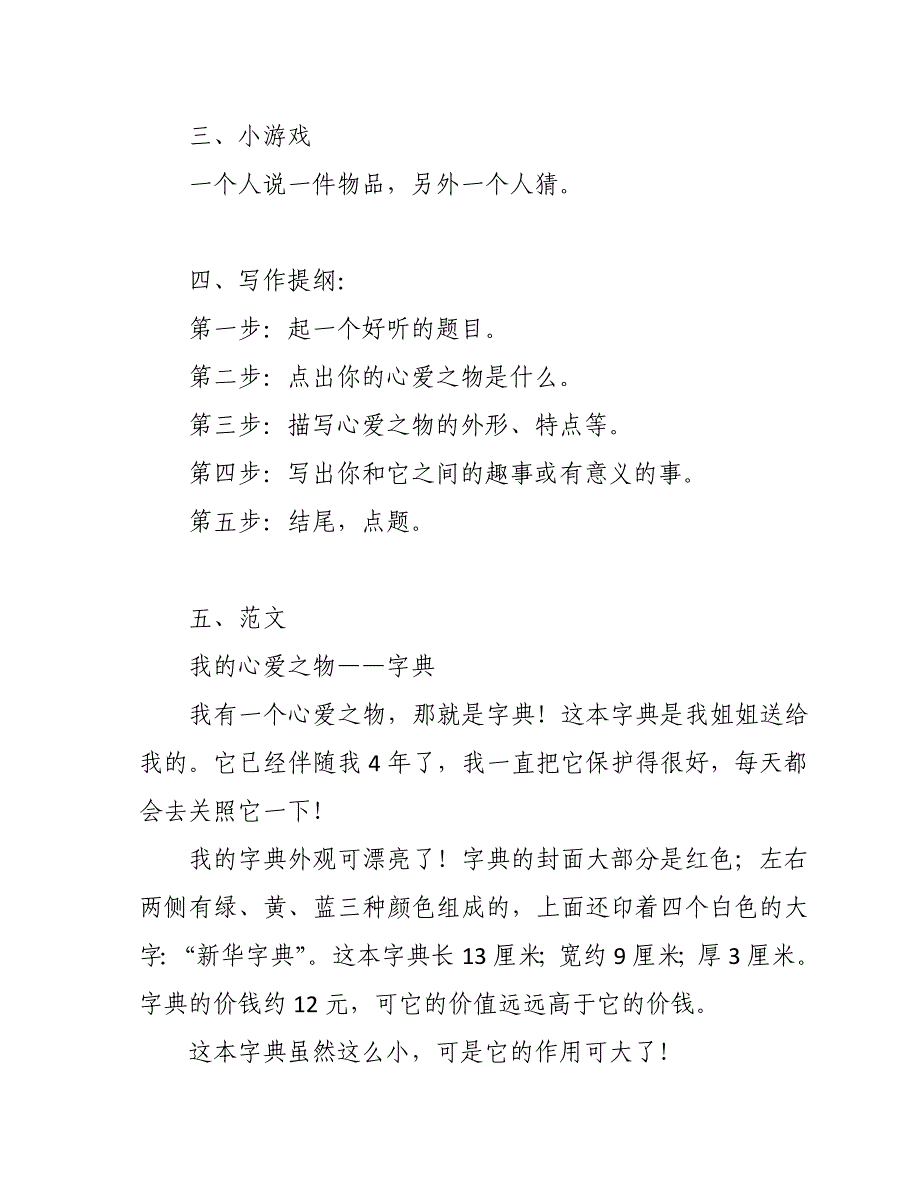 三、小游戏
一个人说一件物品，另外一个人猜。
四、写作提纲：
第一步：起一个好听的题目。
第二步：点出你的心爱之物是什么。
第三步：描写心爱之物的外形、特点等。
第四步：写出你和它之间的趣事或有意义的事。
第五步：结尾，点题。
五、范文
我的心爱之物——字典
我有一个心爱之物，那就是字典！这本字典是我姐姐送给
我的。它已经伴随我 4 年了，我一直把它保护得很好，每天都
会去关照它一下！
我的字典外观可漂亮了！字典的封面大部分是红色；左右
两侧有绿、黄、蓝三种颜色组成的，上面还印着四个白色的大
字：“新华字典”。这本字典长 13 厘米；宽约 9 厘米；厚 3 厘米。
字典的价钱约 12 元，可它的价值远远高于它的价钱。
这本字典虽然这么小，可是它的作用可大了！